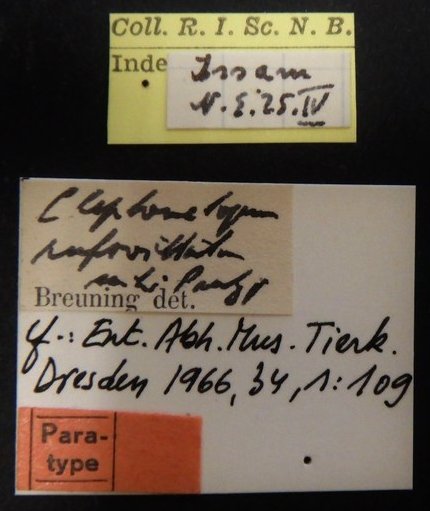 Coll. R. I. Sc. N. B.
Inde
Assam
N.E. 25.IV
rufovittata
mihi Paratyp
Breuning det.
cf.: Ent. Abh. Mus. Tierk.
Dresden 1966, 34, 1: 109
Para-
type